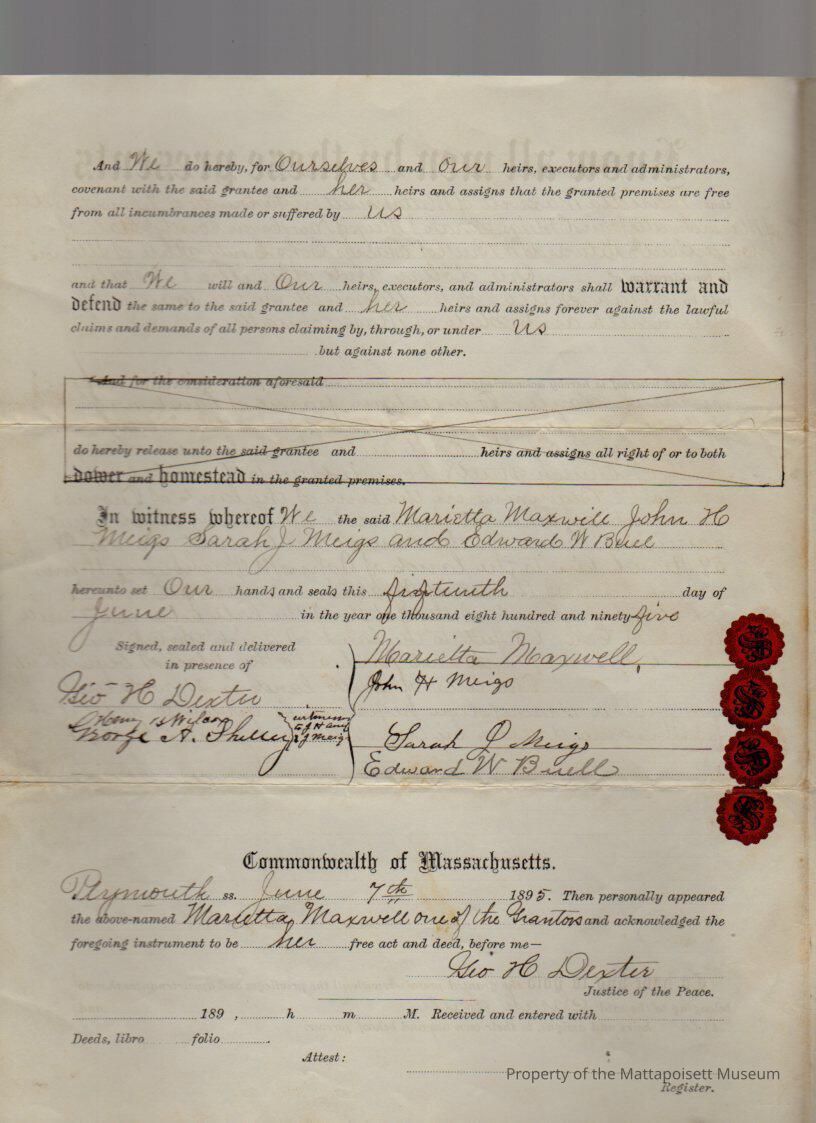 And We do hereby, for Ourselves and Our heirs, executors and administrators,
covenant with the said grantee and her heirs and assigns that the granted premises are free
from all incumbrances made or suffered by us
and that We will and Our heirs, executors, and administrators shall warrant and
defend the same to the said grantee and her heirs and assigns forever against the lawful
claims and demands of all persons claiming by, through, or under us
but against none other.
And for the consideration aforesaid
do hereby release unto the said grantee and heirs and assigns all right of or to both
dower and homestead in the granted premises.
In witness whereof We the said Marietta Maxwell John H
Meigs Sarah J Meigs and Edward W Buel
hereunto set Our hands and seals this day of
June in the year one thousand eight hundred and ninety-five
Signed, sealed and delivered
in presence of
Marietta Maxwell,
John H Meigs
Geo H Dexter
Henry Wilcox
George A.
witness
to J H and
S J Meigs
Sarah J Meigs
Edward W Buell
Commonwealth of Massachusetts.
Plymouth ss. June 7th 1895. Then personally appeared
the above-named Marietta Maxwell one of the Grantors and acknowledged the
foregoing instrument to be her free act and deed, before me—
Geo H Dexter
Justice of the Peace.
189 , h m M. Received and entered with
Deeds, libro folio .
Attest:
Property of the Mattapoisett Museum
Register.